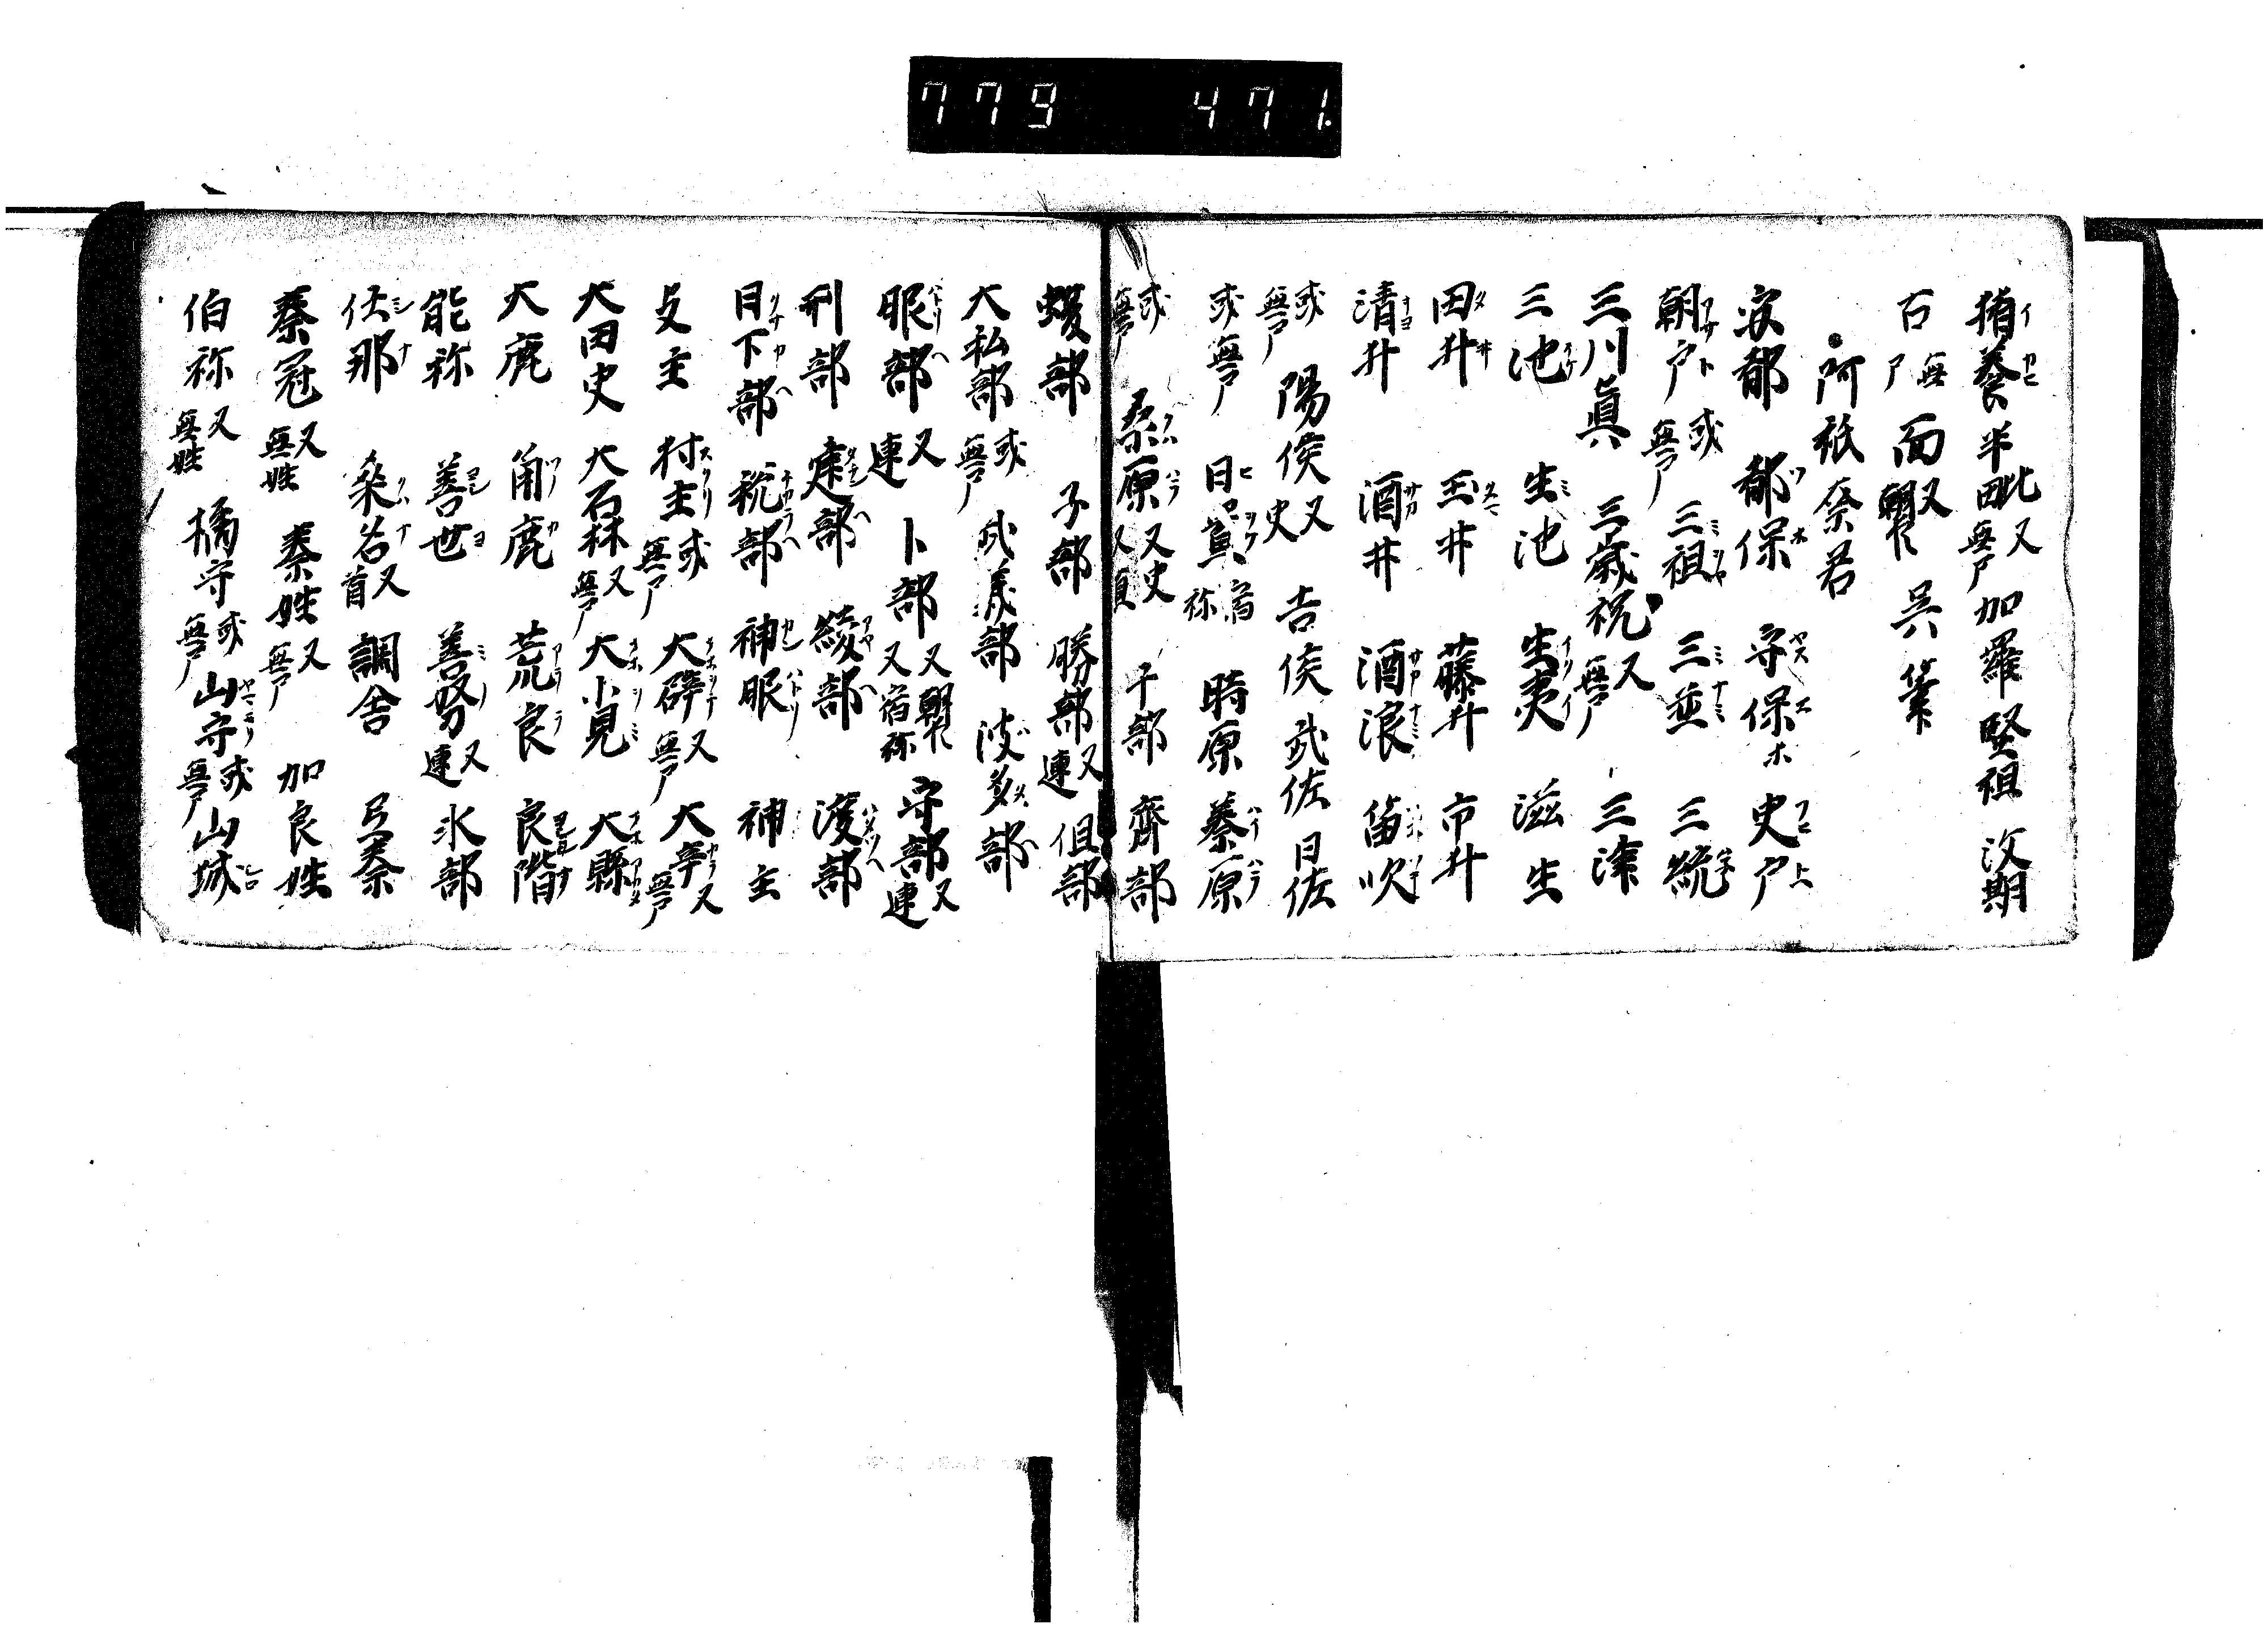 779 471
猪養 半毗 又無尸 加羅 賢祖 汶期
石 無尸 面 又朝臣 呉 筆
阿祇奈君
安都 都保 守保 史戸
朝戸 或無尸 三祖 三並 三統
三川眞 三歳祝 又無尸 三津
三池 生池 生夷 滋生
田井 玉井 藤井 市井
清井 酒井 酒浪 笛吹
或無尸 陽侯 又史 吉侯 武佐 日佐
或無尸 日置 宿祢 時原 秦原
或無尸 桑原 又史 干部 齋部
蝮部 子部 勝部 又連 但部
大私部 或無尸 武義部 波多部
服部 又連 卜部 又朝臣 又宿祢 守部 又連
刑部 建部 綾部 渡部
日下部 税部 神服 神主
文主 村主 或無尸 大辟 又無尸 大宅 又無尸
大田史 大石林 又無尸 大小見 大縣
大鹿 甬鹿 荒良 良階
能祢 善世 善努 又連 氷部
仕那 桒名 又首 調舎 弓秦
秦冠 又無姓 秦姓 又無尸 加良姓
伯祢 又無姓 橘守 或無尸 山守 或無尸 山城